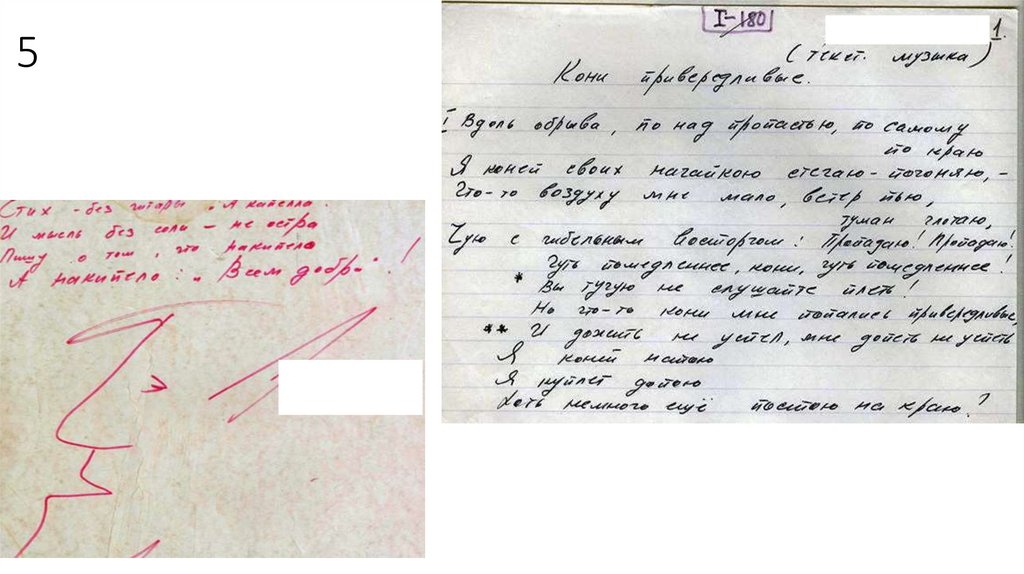 5
Стих - без гитары „А капелла.
И мысль без соли - не остра
Пишу о том, что накипело
А накипело: „Всем добра"!
I-180
1.
(текст. музыка)
Кони привередливые.
I Вдоль обрыва, по над пропастью, по самому
по краю
Я коней своих нагайкою стегаю - погоняю, -
Что-то воздуху мне мало, ветер пью,
туман глотаю,
Чую с гибельным восторгом: Пропадаю! Пропадаю!
Чуть помедленнее, кони, чуть помедленнее!
* Вы тугую не слушайте плеть!
Но что-то кони мне попались привередливые,
** И дожить не успел, мне допеть не успеть
Я коней напою
Я куплет допою
Хоть немного ещё постою на краю!